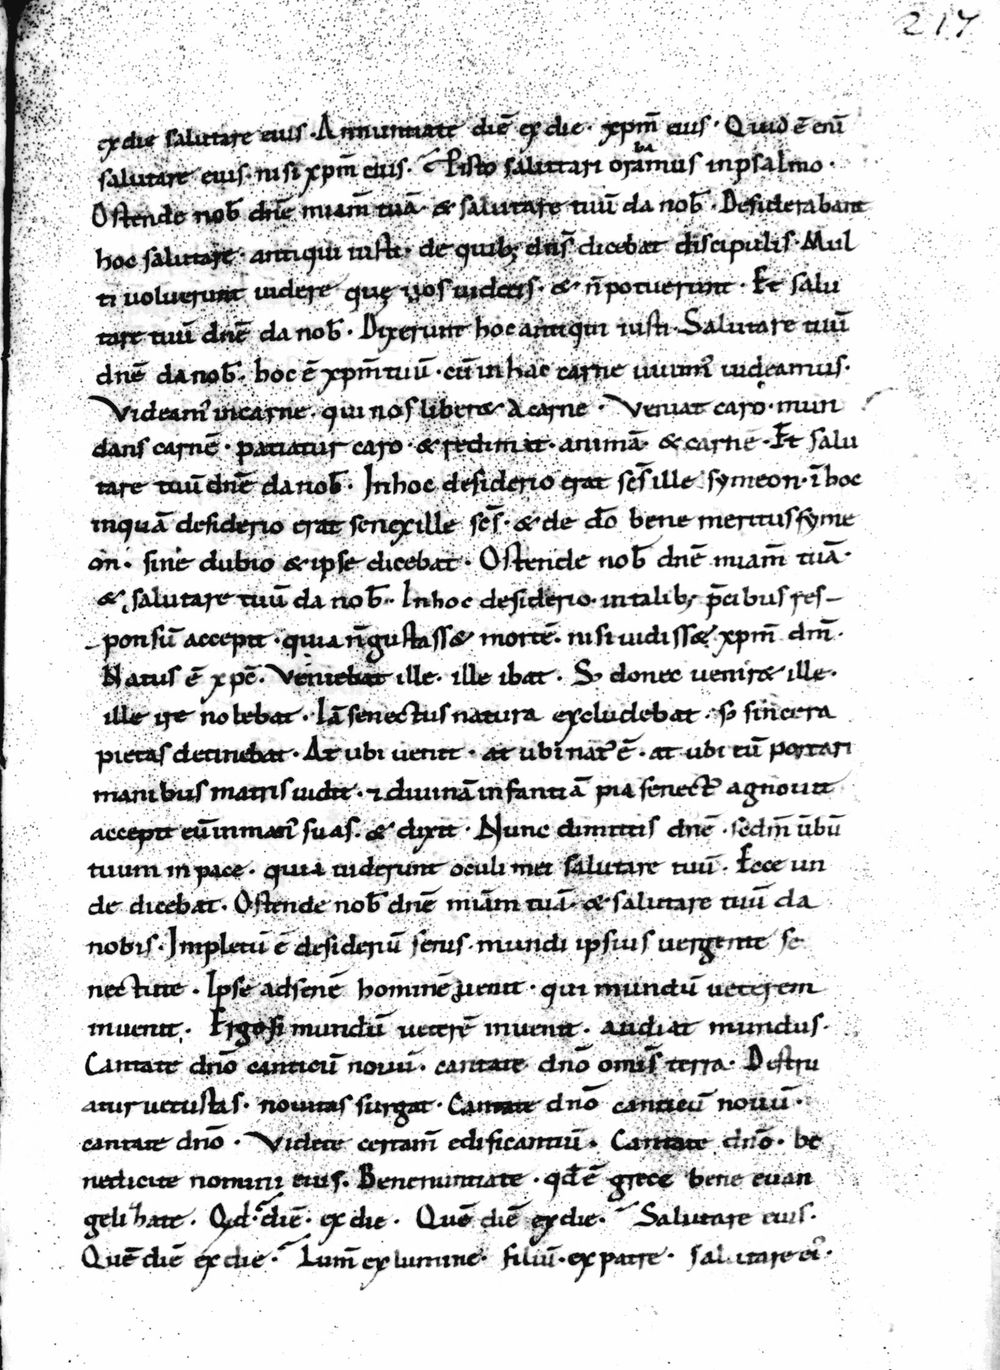 217
ex die salutare eius · Annuntiate diē ex die · xpm̄ eius · Quid ē eni͂
salutare eius · nisi xpm̄ eius · Isto salutari orabamus in psalmo ·
Ostende nob̄ dn̄e miam̄ tuā · & salutare tuū da nob̄ · Desiderabant
hoc salutare · antiqui iusti · de quib; dn̄s dicebat discipulis · Mul
ti uoluerunt uidere quę uos uidetis · & n̄ potuerunt · Et salu
tare tuū dn̄e da nob̄ · Dixerunt hoc antiqui iusti · Salutare tuū
dn̄e da nob̄ · hoc ē xpm̄ tuū · cū in hac carne uiuim' uideamus ·
Videam' in carne · qui nos liber& a carne · Veniat caro · mun
dans carnē · patiatur caro · & redimat · animā & carnē · Et salu
tare tuū dn̄e da nob̄ · In hoc desiderio erat scs̄ ille symeon · ī hoc
inquā desiderio erat senex ille scs̄ · & de dō bene meritus syme
on · sine dubio & ipse dicebat · Ostende nob̄ dn̄e miam̄ tuā ·
& salutare tuū da nob̄ · In hoc desiderio · in talib; p̄cibus res–
ponsū accepit · quia n̄ gustass& mortē · nisi uidiss& xpm̄ dm̄ ·
Natus ē xpc̄ · Veniebat ille · ille ibat · S; donec uenir& ille ·
ille ire nolebat · Iā senectus natura excludebat · s; sincera
pietas detinebat · At ubi uenit · at ubi nat' ē · at ubi eū portari
manibus matris uidit · & diuinā infantiā pia senect' agnouit
accepit eū in man' suas · & dixit · Nunc dimittis dn̄e · sedm̄ ūbū
tuum in pace · quia uiderunt oculi mei salutare tuū · Ecce un
de dicebat · Ostende nob̄ dn̄e miam̄ tuā · & salutare tuū da
nobis · Impletū ē desideriū senis · mundi ipsius uergente se
nectute · Ipse ad senē hominē uenit · qui mundū ueterem
inuenit · Ergo si mundū ueterē inuenit · audiat mundus ·
Cantate dn̄o canticū nouū · cantate dn̄o omis̄ terra · Destru
atur uetustas · nouitas surgat · Cantate dn̄o canticū nouū ·
cantate dn̄o · Videte certam̄ edificantiū · Cantate dn̄o · be
nedicite nomini eius · Benenuntiate · qd̄ ē grece bene euan
gelizate · Qd · diē · ex die · Quē diē ex die · Salutare eius ·
Quē diē ex die · Lum̄ ex lumine · filiū · ex patre · salutare ei' ·